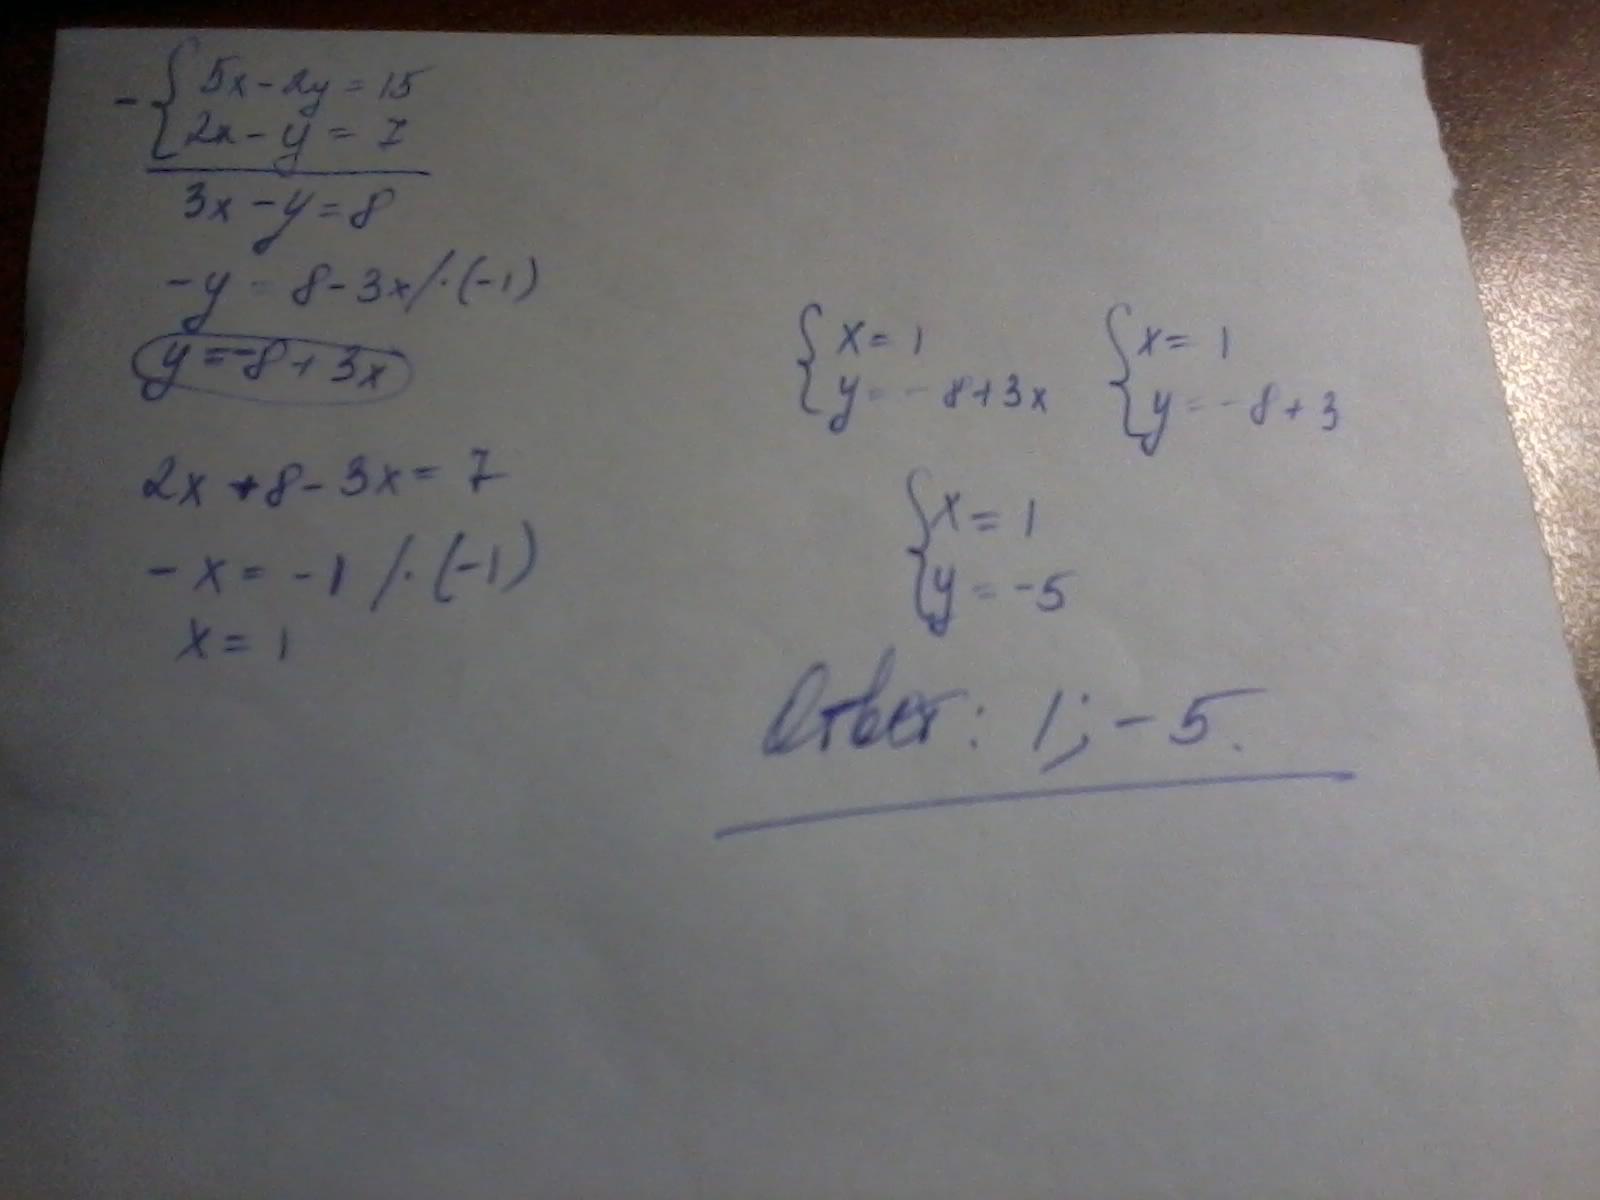 - { 5x - 2y = 15
2x - y = 7
3x - y = 8
-y = 8 - 3x /·(-1)
y = -8 + 3x
2x + 8 - 3x = 7
- x = -1 /·(-1)
x = 1
{ x = 1
y = -8 + 3x
{ x = 1
y = -8 + 3
{ x = 1
y = -5
Ответ: 1; -5.